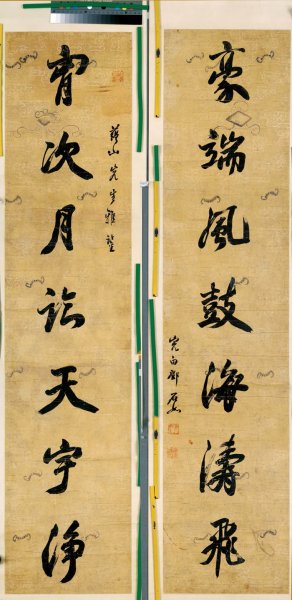 豪端風鼓海濤飛
完白鄧石如
山先生雅鑒
胷次月臨天宇淨